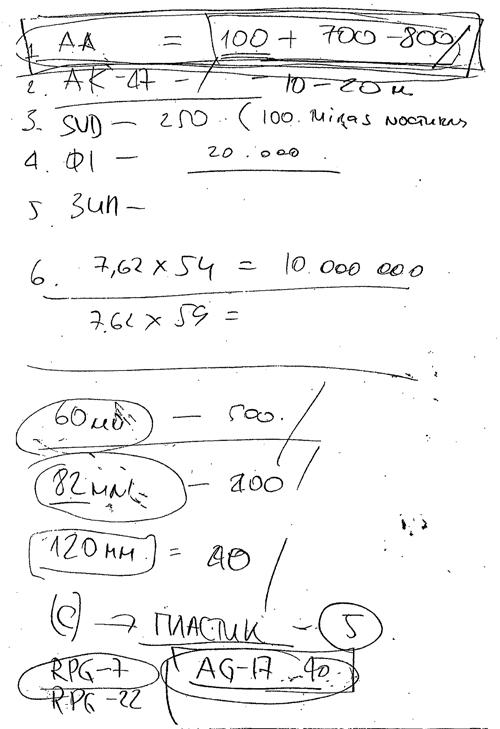 1. AA = 100 + 700-800
2. AK-47 - 10-20м
3. SVD - 250 (100. миgas
4. Ф1 - 20.000
5. ЗИП -
6. 7,62 x 54 = 10.000 000
7.62 x 59 =
60мм - 500.
82мм - 200
120мм = 40
(C) → ПЛАСТИК - 5
RPG-7 AG-17 - 40
RPG-22